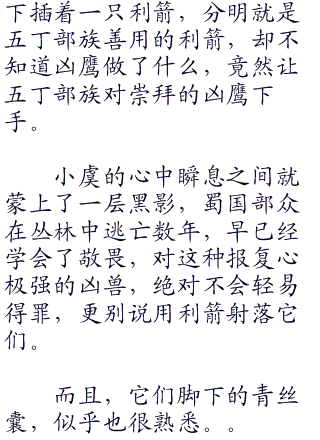 下插着一只利箭，分明就是
五丁部族善用的利箭，却不
知道凶鹰做了什么，竟然让
五丁部族对崇拜的凶鹰下
手。
小虞的心中瞬息之间就
蒙上了一层黑影，蜀国部众
在丛林中逃亡数年，早已经
学会了敬畏，对这种报复心
极强的凶兽，绝对不会轻易
得罪，更别说用利箭射落它
们。
而且，它们脚下的青丝
囊，似乎也很熟悉。。